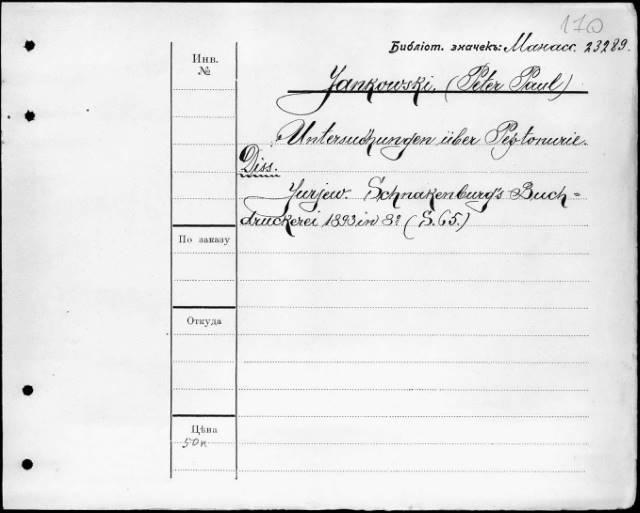 170
Библіот. значекъ: Манасс. 23289.
Инв.
№
Yankowski. (Peter Paul)
Untersuchungen über Peptonurie.
Diss.
Yurjew. Schnakenburg's Buch-
druckerei 1893 in 8º (S. 65.)
По заказу
Откуда
Цѣна
50к